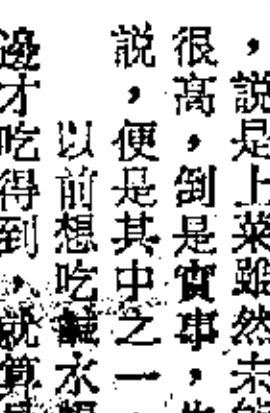 ，說是上菜雖然未
很高，倒是實事，
說，便是其中之一
以前想吃鹹水
邊才吃得到、就算